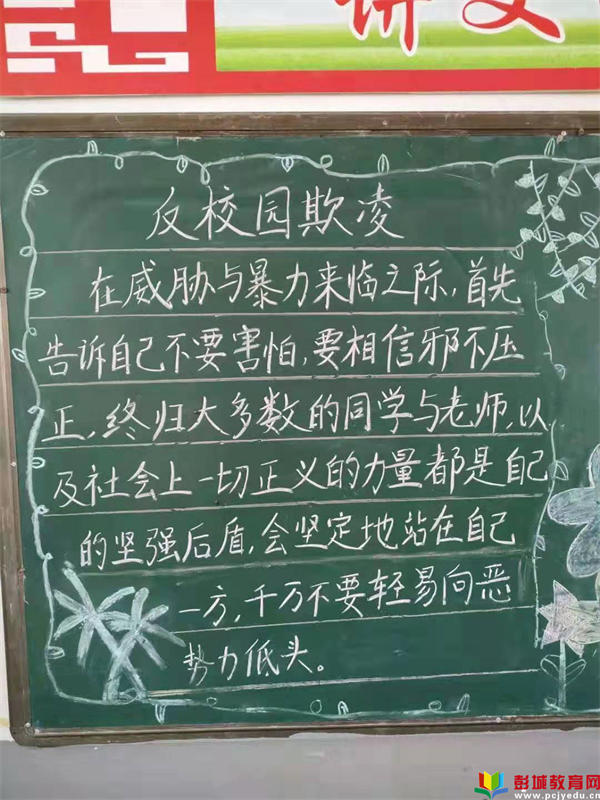 讲文
反校园欺凌
在威胁与暴力来临之际,首先
告诉自己不要害怕,要相信邪不压
正,终归大多数的同学与老师,以
及社会上一切正义的力量都是自己
的坚强后盾,会坚定地站在自己
一方,千万不要轻易向恶
势力低头。
彭城教育网
www.pcjyedu.cn